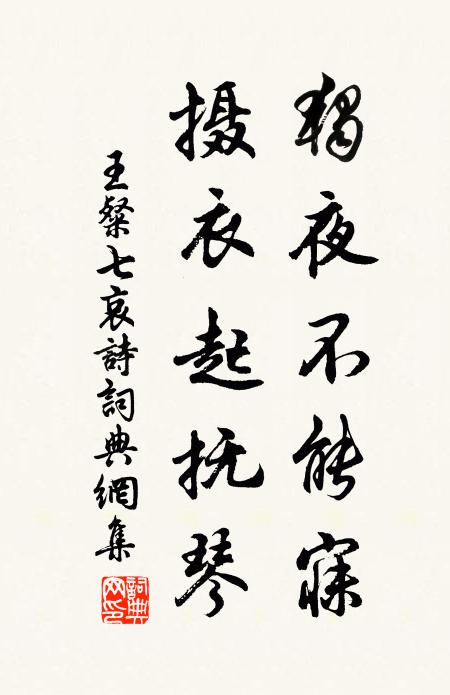 獨夜不能寐
摄衣起抚琴
王粲七哀詩詞典網集
詞典網印